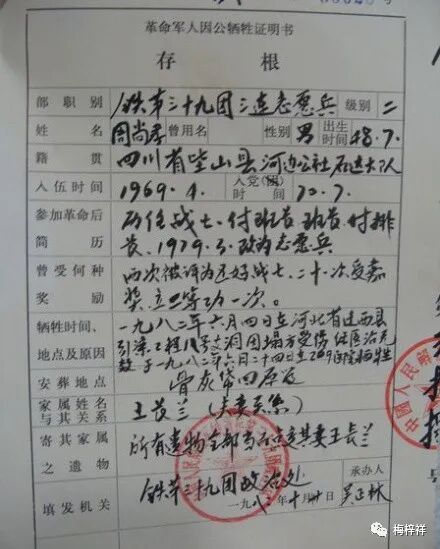 革命军人因公牺牲证明书
存根
部职别 铁第三十九团三连志愿兵 级别 二
姓名 周尚孝 曾用名 性别 男 出生时间 48.7.
籍贯 四川省璧山县河边公社石连大队
入伍时间 1969.4. 入党(团)时间 70.7.
参加革命后简历 历任战士、付班长、班长、付排
长、1979.3.改为志愿兵
曾受何种奖励 两次被评为五好战士、二十次受嘉
奖、立三等功一次。
牺牲时间、地点及原因 一九八二年六月四日在河北省迁西县
引滦工程八号支洞因塌方受伤经医治无
效于一九八二年六月二十四日在269医院牺牲
安葬地点 骨灰带回原籍
家属姓名与其关系 王长兰(夫妻关系)
寄其家属之遗物 所有遗物全部寄给其妻王长兰
填发机关 铁第三十九团政治处 承办人
一九八二年十月十日 吴正林
中国人民解
梅梓祥